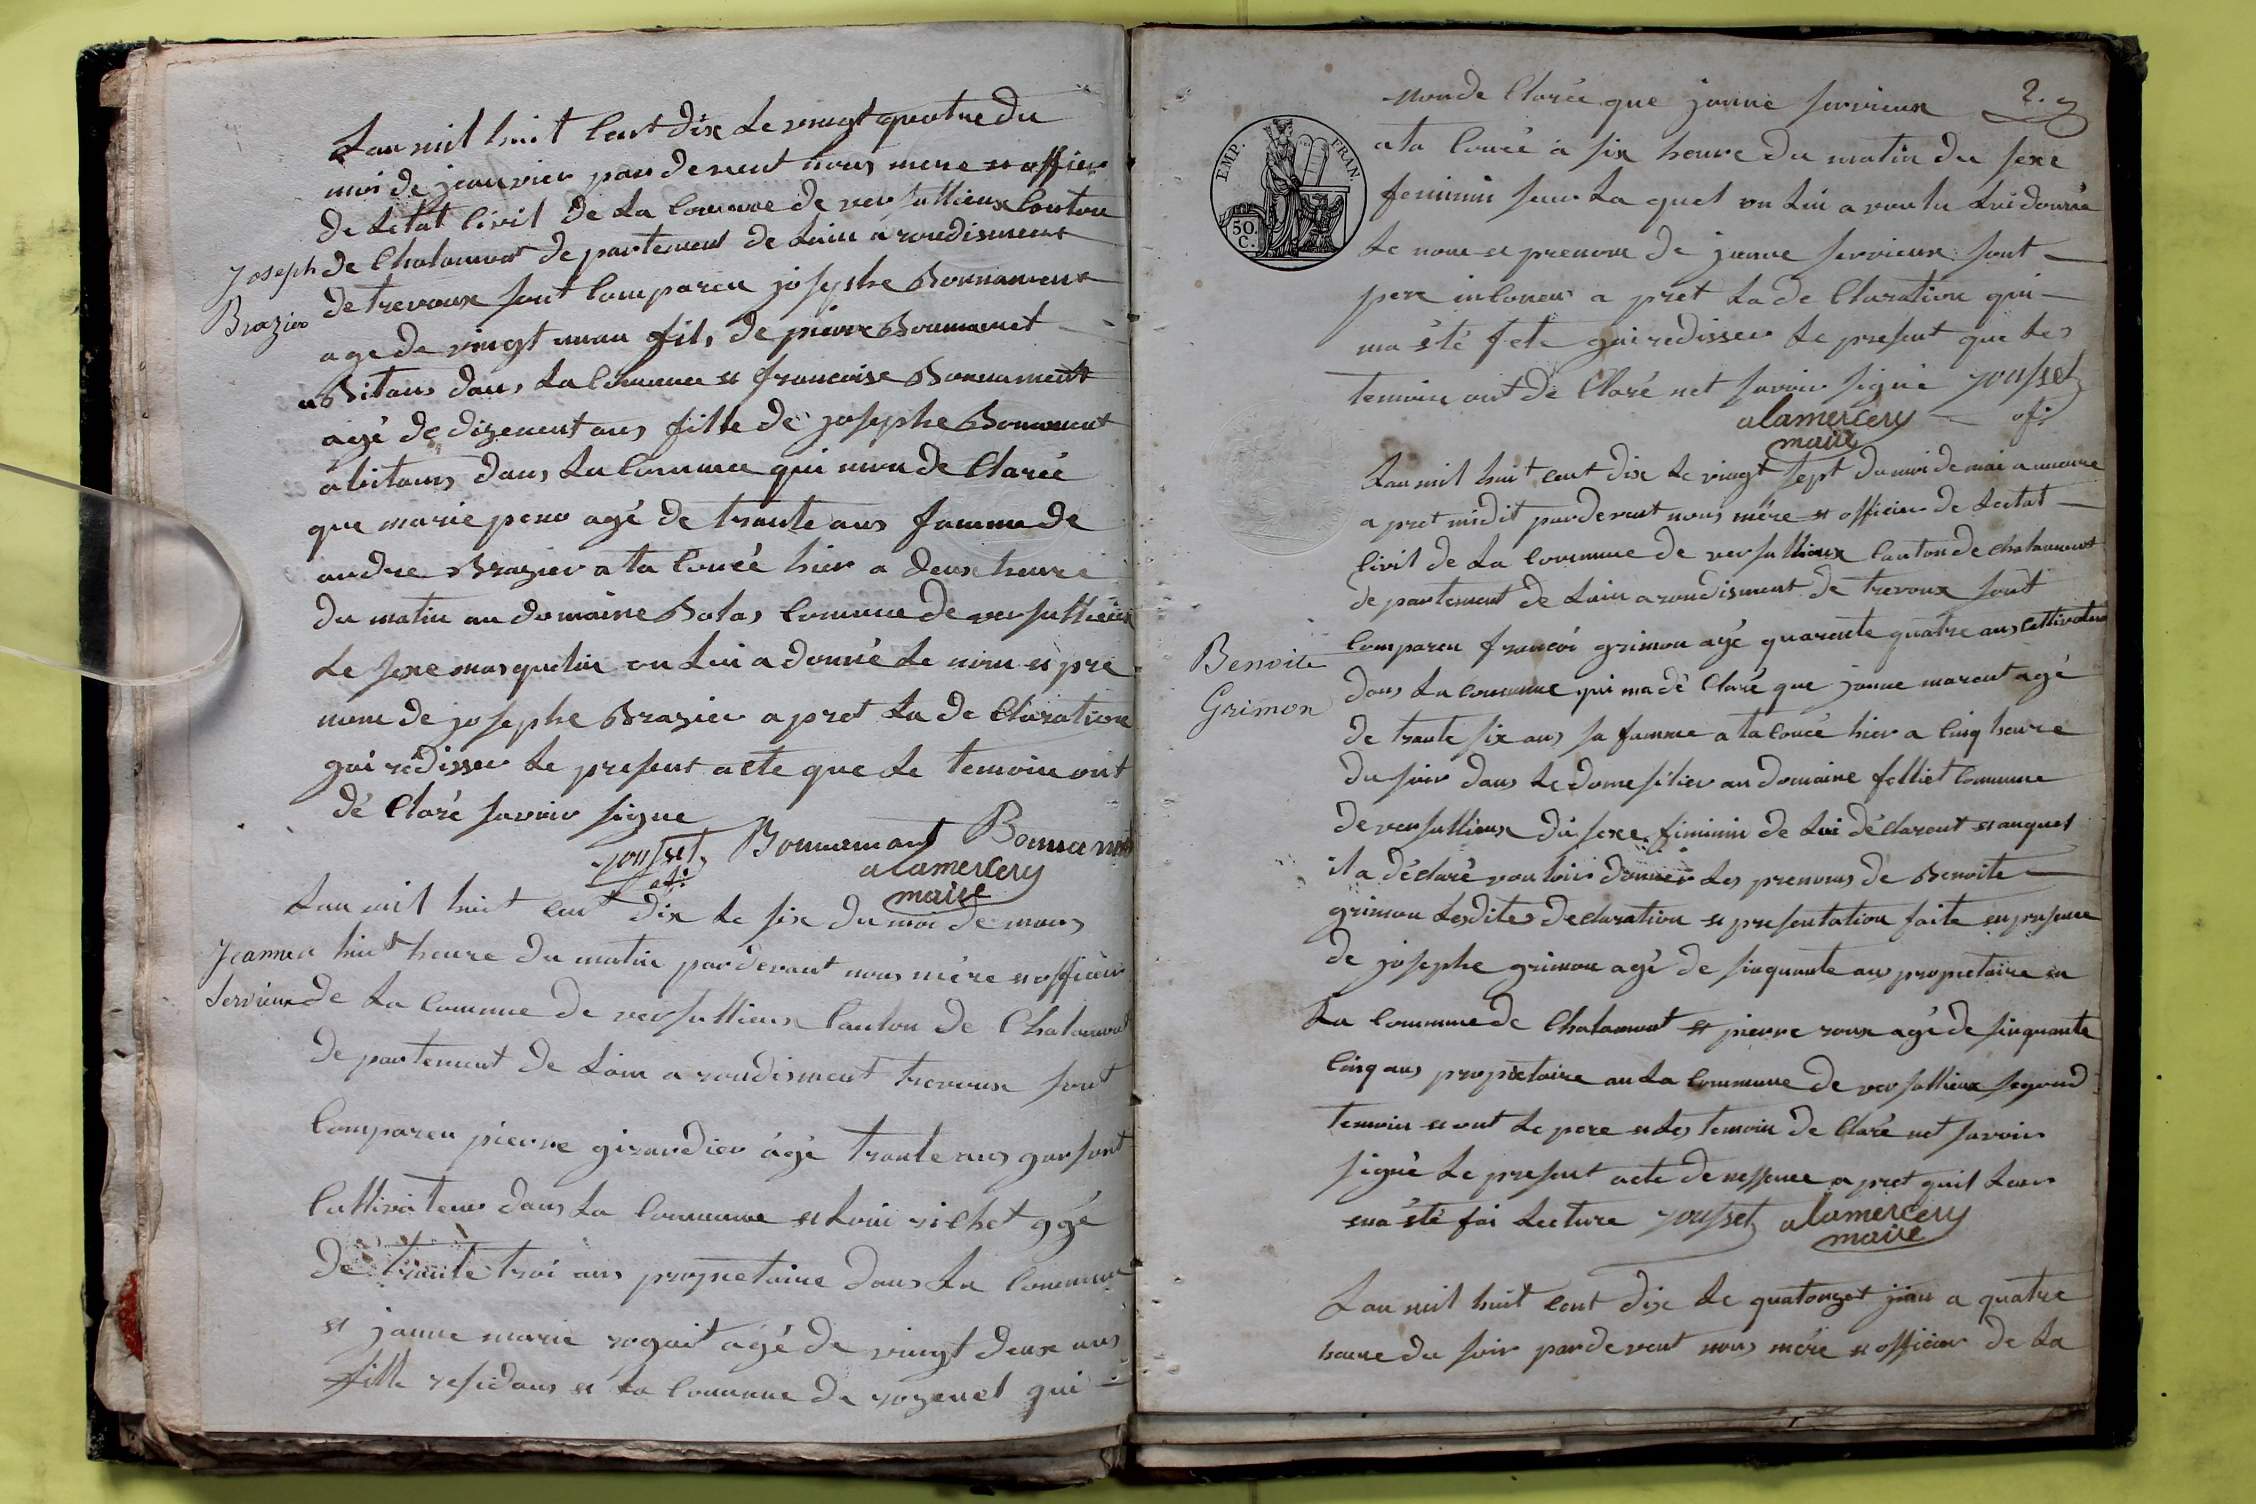 Lan mil huit Cent dix Le vingt quatre du
moi de jeanvier par devent nous mere et officier
de Letat Civil de La Commune de versallieux Conton
Joseph
Brazier
de Chalamont departement de Lain arondisment
de trevoux sont Compareu josephe Bonnament
age de vingt unan fils de pierre Bonnament
abitans dans La Commune et francoise Bonnament
agé de dizeneut ans fille de josephe Bonnament
abitans dans La Commune qui mon de Claréé
que marie agé de trante ans famme de
andre Brazier a ta Couéé hier a deux heure
du matin au domaine Bolas Commune de versallieux
Le sexe masquelin on Lui a donné Le nom et pre
nom de josephe Brazier apret La de Claration
gai redisser Le present acte que Le temoin ont
dé Claré savoir signe
Jousset Bonnamant Bonnamant
afi alamercery
maire
Lan mil huit cent dix Le six du moi de mars
Jeanne
Servieux
a huit heure du matin par devant nous mére et officier
de La Commune de versallieux Canton de Chalamont
departement de Lain arondisment trevoux sont
Comparen pierre girardier ágé trante ans garsont
Cultivateur dans La Commune et Loui richet agé
de trante troi ans proprietaire dans La Commune
et janne marie rogait agé de vingt deux ans
fille residans et La Commune de qui
monde Clarée que janne servieux 2.
a ta Couéé a six heure du matin du sexe
EMP. FRAN.
50. C.
feminin sur La quel on Lui a voulu Lui donné
Le nom et prenom de janne servieux sont
pere inconeu a pret La de Claration qui
ma été fete gai redisser Le present que Les
temoin ont dé Claré net savoir signé Jousset
alamercery afi
maire
Lan mil huit cent dix Le vingt sept du moi de mai a uneure
a pret midit par devent nous mére et officier de Letat
Civil de La Commune de versallieux Canton de chalamont
departement de Lain arondisment de trevoux sont
Comparen francoi grimon agé quarente quatre ans Cultivateur
Benoite
Grimon
dans La commune qui ma dé Claré que janne marent agé
de trante six ans sa famme a ta Couéé hier a Cinq heure
du soir dans Le domesilier au domaine felliet Commune
de versallieux du sexe fiminin de Lui déclarent et auquel
il a déclaré vouloir donner Les prenoms de Benoite
grimon Lesdites declaration et presentation faite en presence
de josephe grimon agé de sinquante ans proprietaire en
La Commune de Chalamont et pierre roux agé de sinquante
Cinq ans proprietaire an La Commune de versallieux segond
temoin et ont Le pere et Les temoin de Claré net savoir
signé Le present acte de nessence a pret quil Leur
ena été fai Lecture Jousset alamercery
maire
Lan mil huit cent dix Le quatorzet juin a quatre
heure du soir par devent nous mére et officier de La